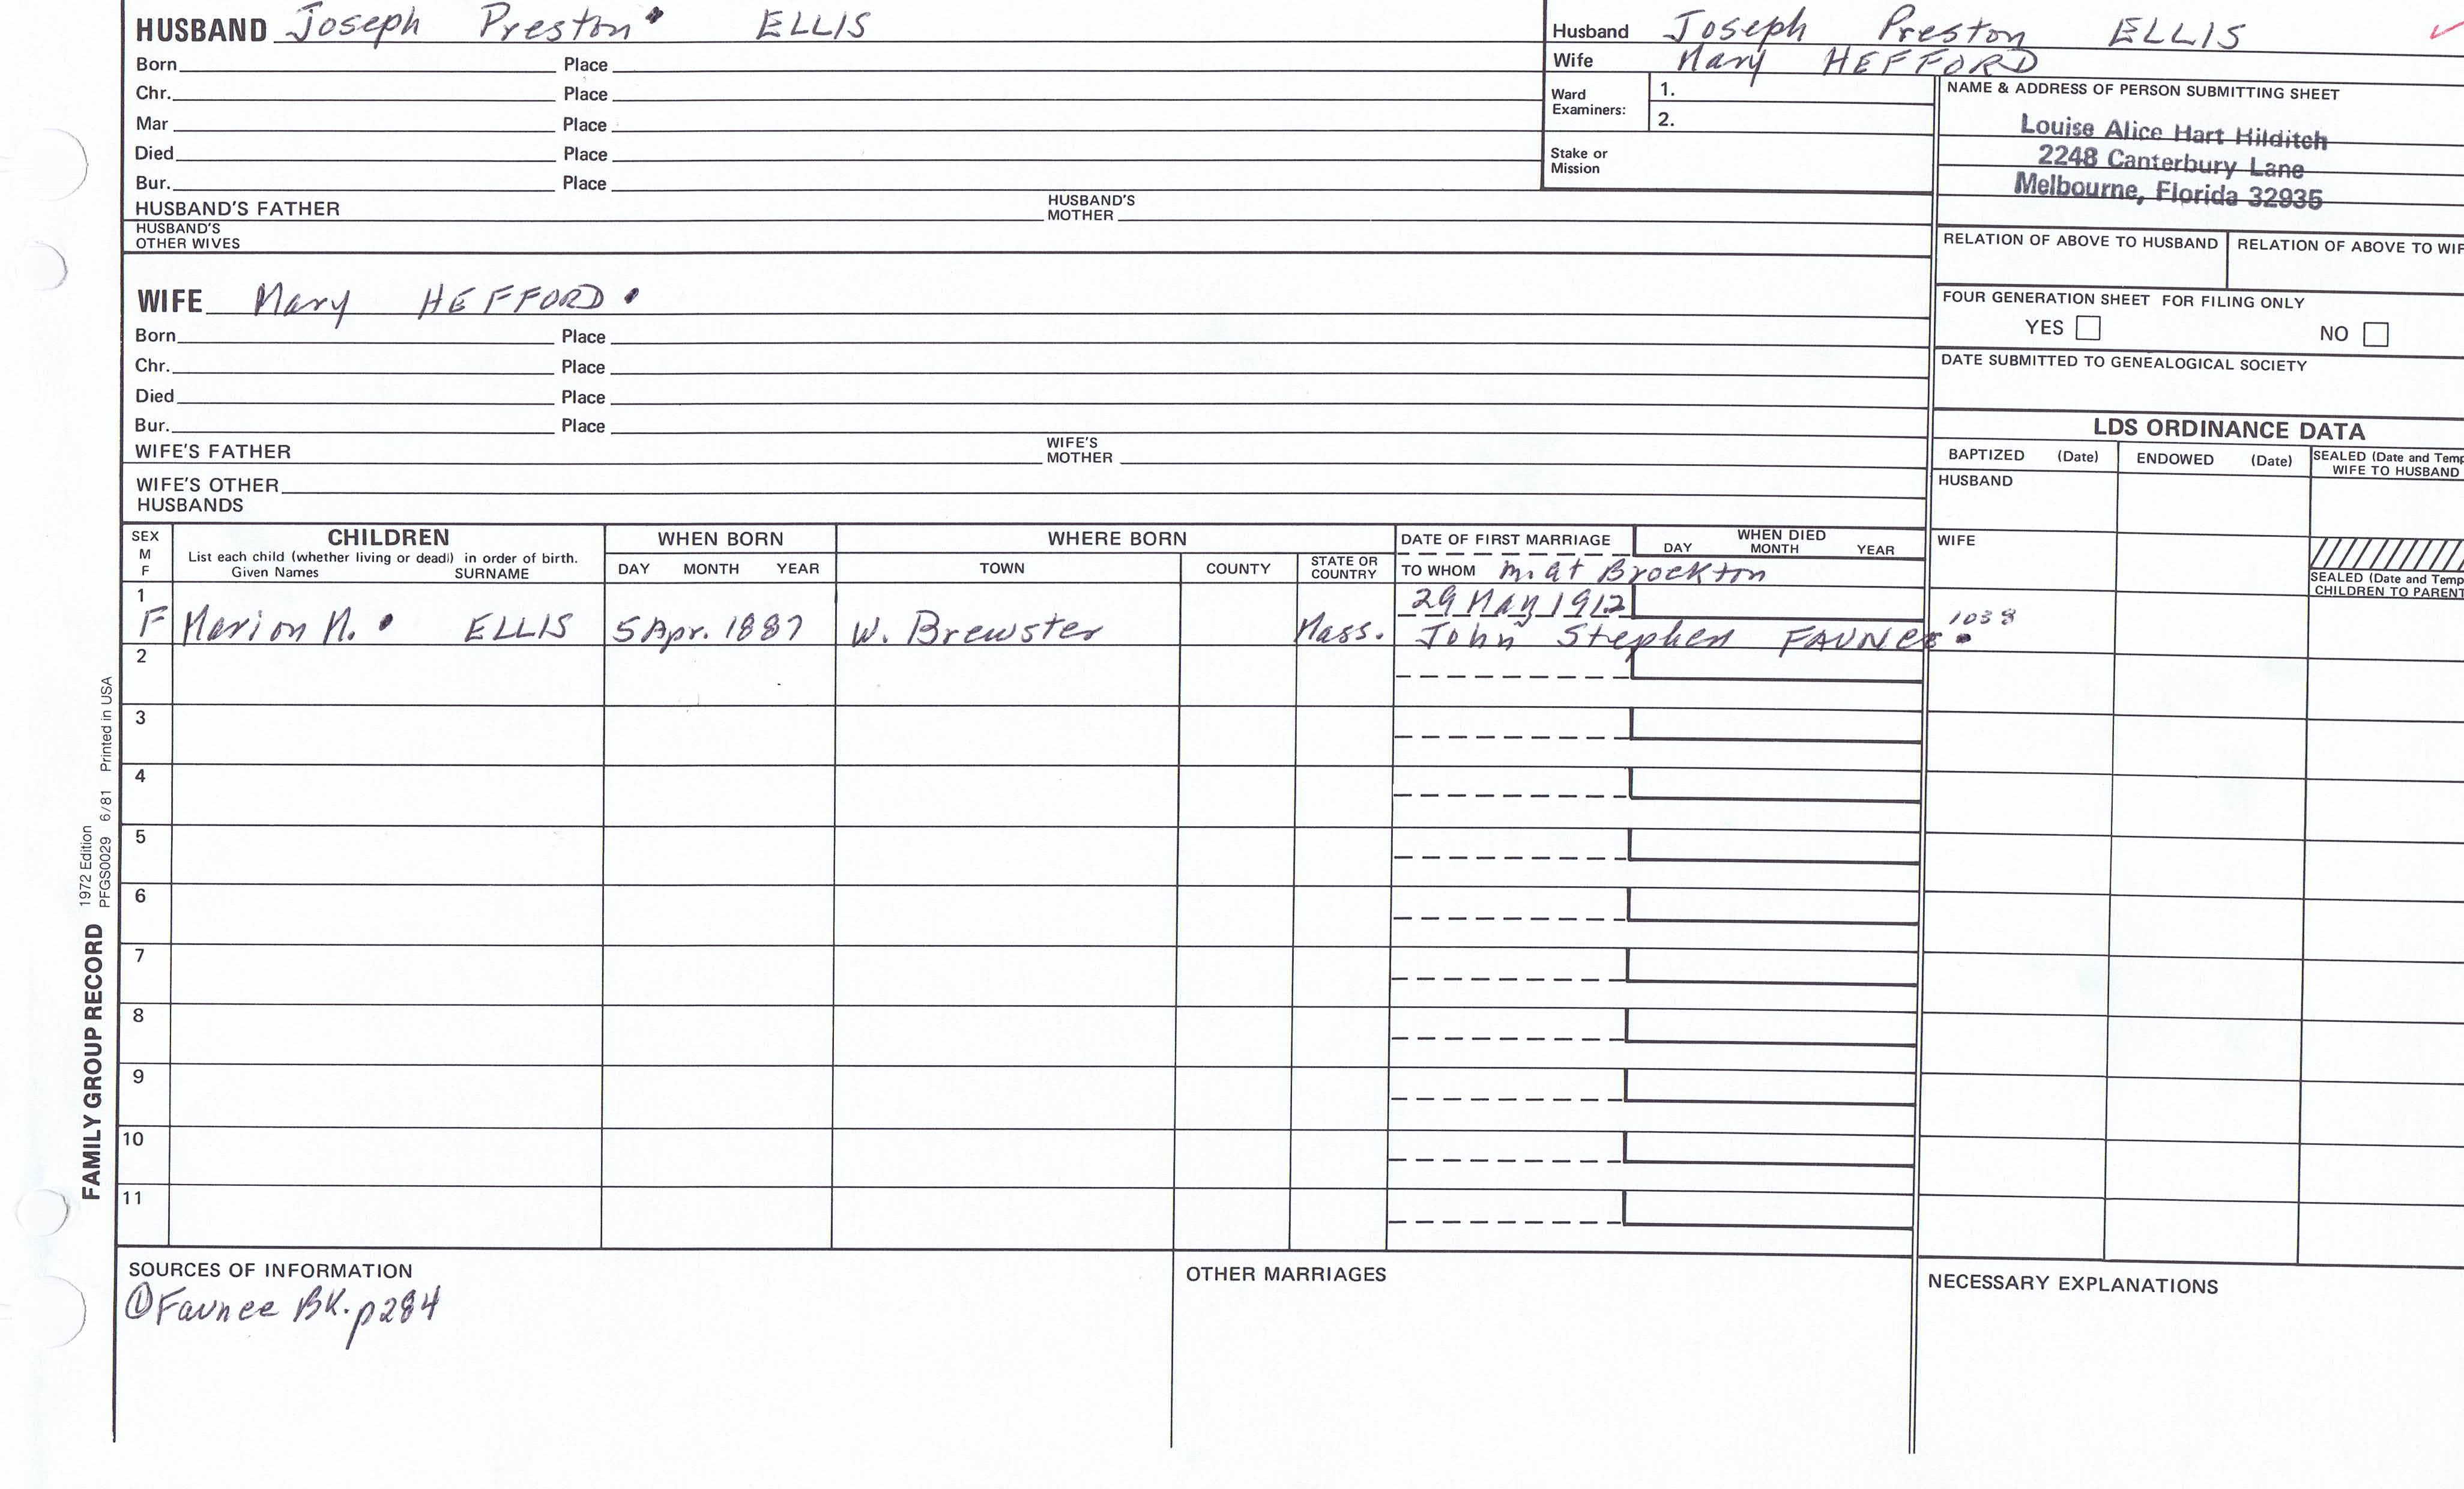 HUSBAND Joseph Preston ELLIS
Born Place
Chr. Place
Mar Place
Died Place
Bur. Place
HUSBAND'S FATHER HUSBAND'S MOTHER
HUSBAND'S OTHER WIVES
WIFE Mary HEFFORD
Born Place
Chr. Place
Died Place
Bur. Place
WIFE'S FATHER WIFE'S MOTHER
WIFE'S OTHER HUSBANDS
Husband Joseph Preston ELLIS
Wife Mary HEFFORD
Ward Examiners: 1.
2.
Stake or Mission
NAME & ADDRESS OF PERSON SUBMITTING SHEET
Louise Alice Hart Hilditch
2248 Canterbury Lane
Melbourne, Florida 32935
RELATION OF ABOVE TO HUSBAND RELATION OF ABOVE TO WIF
FOUR GENERATION SHEET FOR FILING ONLY
YES NO
DATE SUBMITTED TO GENEALOGICAL SOCIETY
LDS ORDINANCE DATA
BAPTIZED (Date) ENDOWED (Date) SEALED (Date and Temp
WIFE TO HUSBAND
HUSBAND
WIFE
SEALED (Date and Temp
CHILDREN TO PARENT
SEX M F
CHILDREN
List each child (whether living or dead) in order of birth.
Given Names SURNAME
WHEN BORN
DAY MONTH YEAR
WHERE BORN
TOWN COUNTY STATE OR COUNTRY
DATE OF FIRST MARRIAGE
TO WHOM m. at Brockton
WHEN DIED
DAY MONTH YEAR
1 29 May 1912
F Marion M. ELLIS 5 Apr. 1887 W. Brewster Mass. John Stephen FAUNCE 1038
2
3
4
5
6
7
8
9
10
11
SOURCES OF INFORMATION
① Faunce BK. p284
OTHER MARRIAGES
NECESSARY EXPLANATIONS
FAMILY GROUP RECORD
1972 Edition
PFGS0029 6/81 Printed in USA